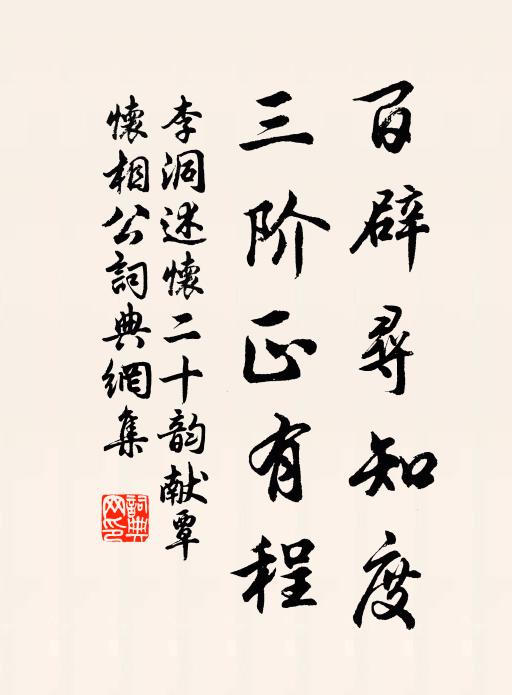 百辟寻知度
三阶正有程
李洞述懷二十韵献覃
懷相公詞典網集
詞典網印